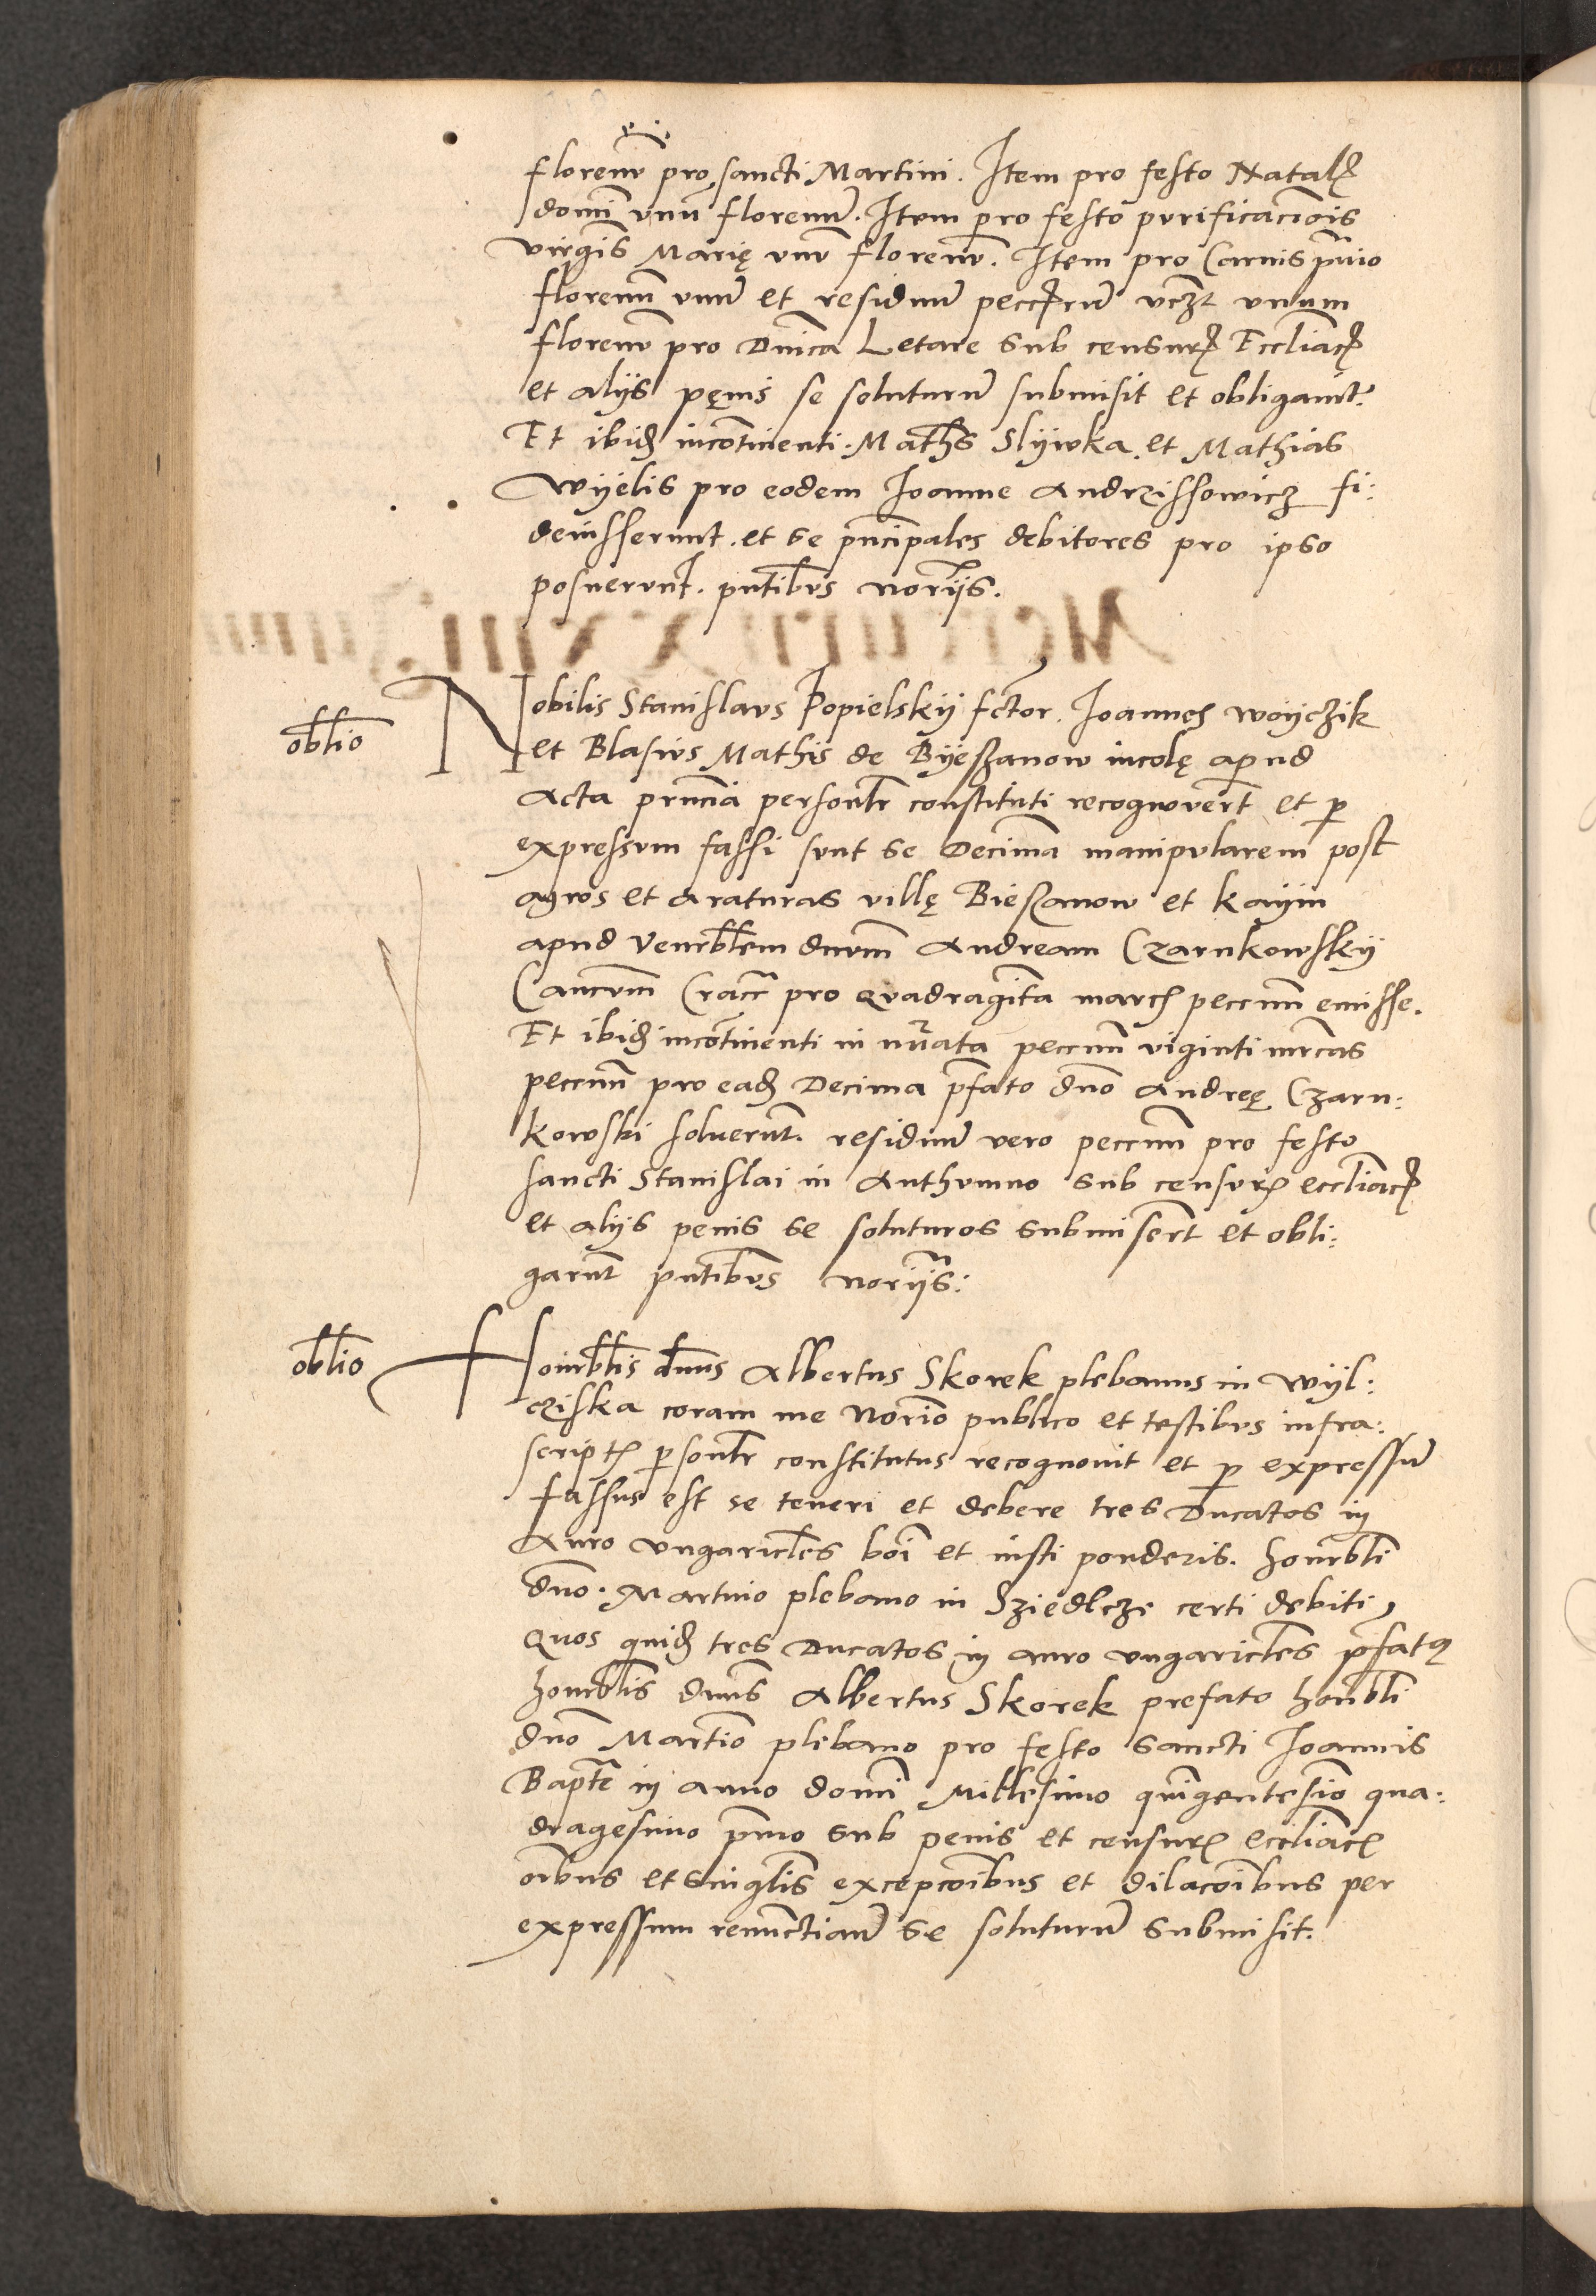 florenũ pro sancti Martini. Item pro festo Natal
domĩ vnũ florenũ. Item pro festo purificacõis
virgĩs Marię vnũ florenũ. Item pro Carnispuio
florenũ vnũ et residuũ pecc̃rũ vczt vnum
florenũ pro Dnica Letare sub censur Eccliac
et alijs pęnis se soluturũ submisit et obligauit
Et ibid incõtinenti. Maths Slywka et Mathias
Wyelis pro eodem Joanne Andrzissowicz fi:
deiusserunt. et se pncipales debitores pro ipso
posuerunt. pntibus norijs.
oblio
Nobilis Stanislaus Popielskij fctor. Joannes Woyczik
et Blasius Mathis de Byeszanow incolę apud
Acta pruncia personlr constituti recognouert et p
expressum fassi sunt se Decimã manipularem post
agros et araturas villę Bieszanow et Kayim
apud Venrblem dnum Andream Czarnkowskij
Cancum Cracc pro quadraginta marc peccun emisse.
Et ibid incõtinenti in nũrata peccun viginti mrcas
peccun pro ead Decima pfato dno Andreę Czarn:
kowski soluerunt. residuũ vero peccun pro festo
sancti Stanislai in Authumno sub censur eccliac
et alijs penis se soluturos submisert et obli:
garunt pntibus norijs:
oblio
Honrblis dnus Albertus Skorek plebanus in Wyl:
cziska coram me Norio publico et testibus infra:
script psonlr constitutus recognouit et p expressũ
fassus est se teneri et debere tres Ducatos in
Auro vngaricles boĩ et iusti ponderis. honrbli
dno. Martino plebano in Sziedlcze certi debiti,
quos quid tres Ducatos in auro vngaricles pfat
honrblis dnus Albertus Skorek prefato honrbli
dno Martĩo plebano pro festo Sancti Joannis
Bapte in anno domĩ Millesimo quĩgentesĩo qua:
dragesimo pmo sub penis et censur eccliac
oĩbus et singlis excepcoĩbus et dilacoĩbus per
expressum renunctiaũ se soluturũ submisit.